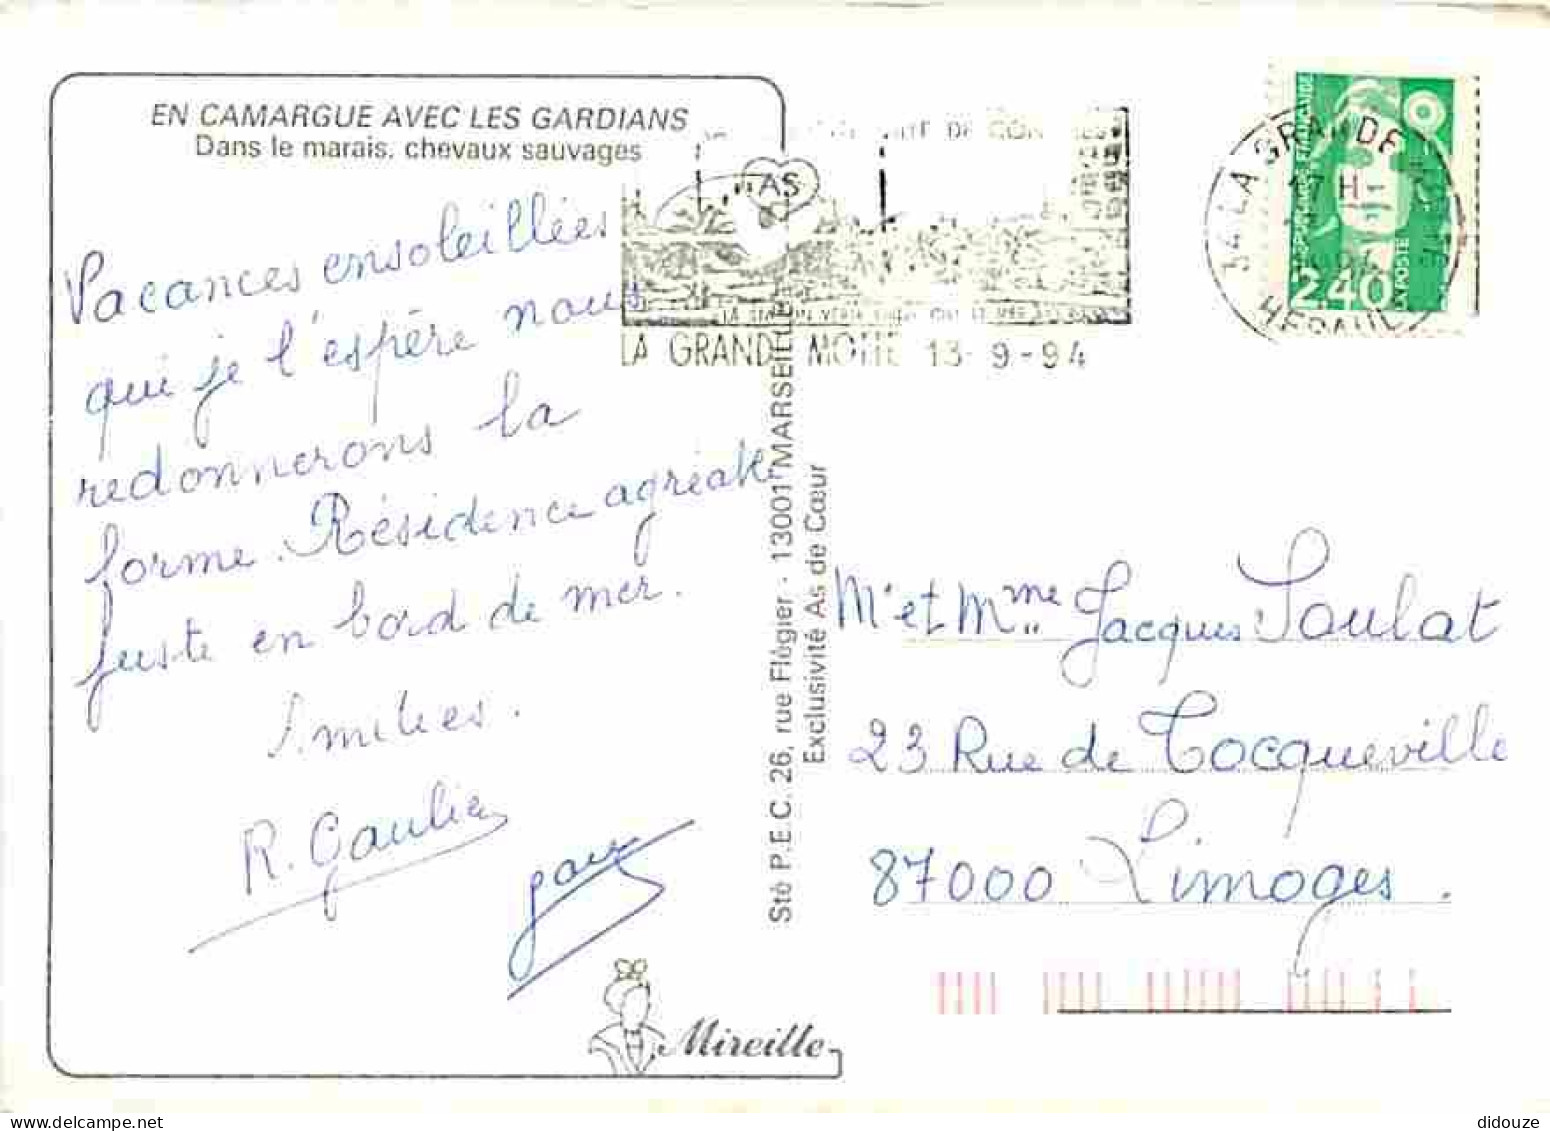 EN CAMARGUE AVEC LES GARDIANS
Dans le marais, chevaux sauvages
Vacances ensoleillées
qui je l'espère nous
redonnerons la
forme. Résidence agréable
juste en bord de mer.
Amitiés.
R. Gaulier
Mireille
Sté P.E.C. 26, rue Flégier - 13001 MARSEILLE
Exclusivité As de Cœur
AS
LA GRANDE MOTTE 13-9-94
34 LA GRANDE
17 H
HERAULT
LA POSTE
2,40
Mr et Mme Jacques Soulat
23 Rue de Tocqueville
87000 Limoges.
didouze